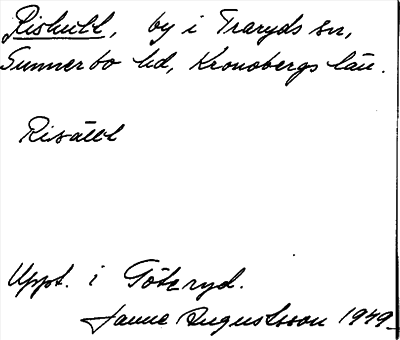 Rishult, by i Traryds sn,
Sunnerbo hd, Kronobergs län.
Risält
Uppt. i Göteryd.
Janne Augustsson 1949.